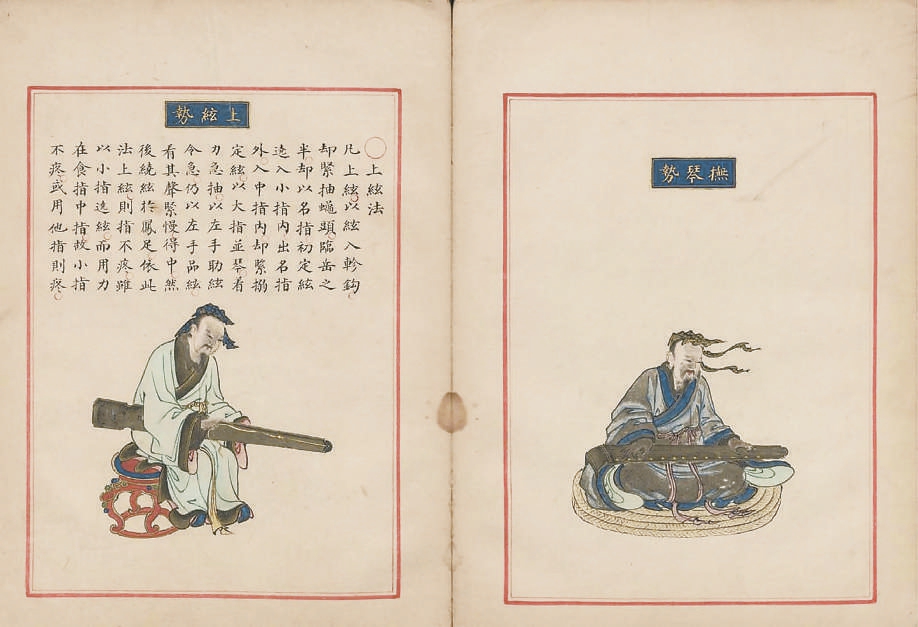 撫琴勢
上絃勢
○上絃法
凡上絃以絃入軫鈎
却緊抽蠅頭臨岳之
半却以名指初定絃
遶入小指内出名指
外入中指内却緊搦
定絃以大指並琴着
力急抽以左手助絃
令急仍以左手品絃
看其聲緊慢得中然
後繞絃扵鳳足依此
法上絃則指不疼雖
以小指遶絃而用力
在食指中指故小指
不疼或用他指則疼